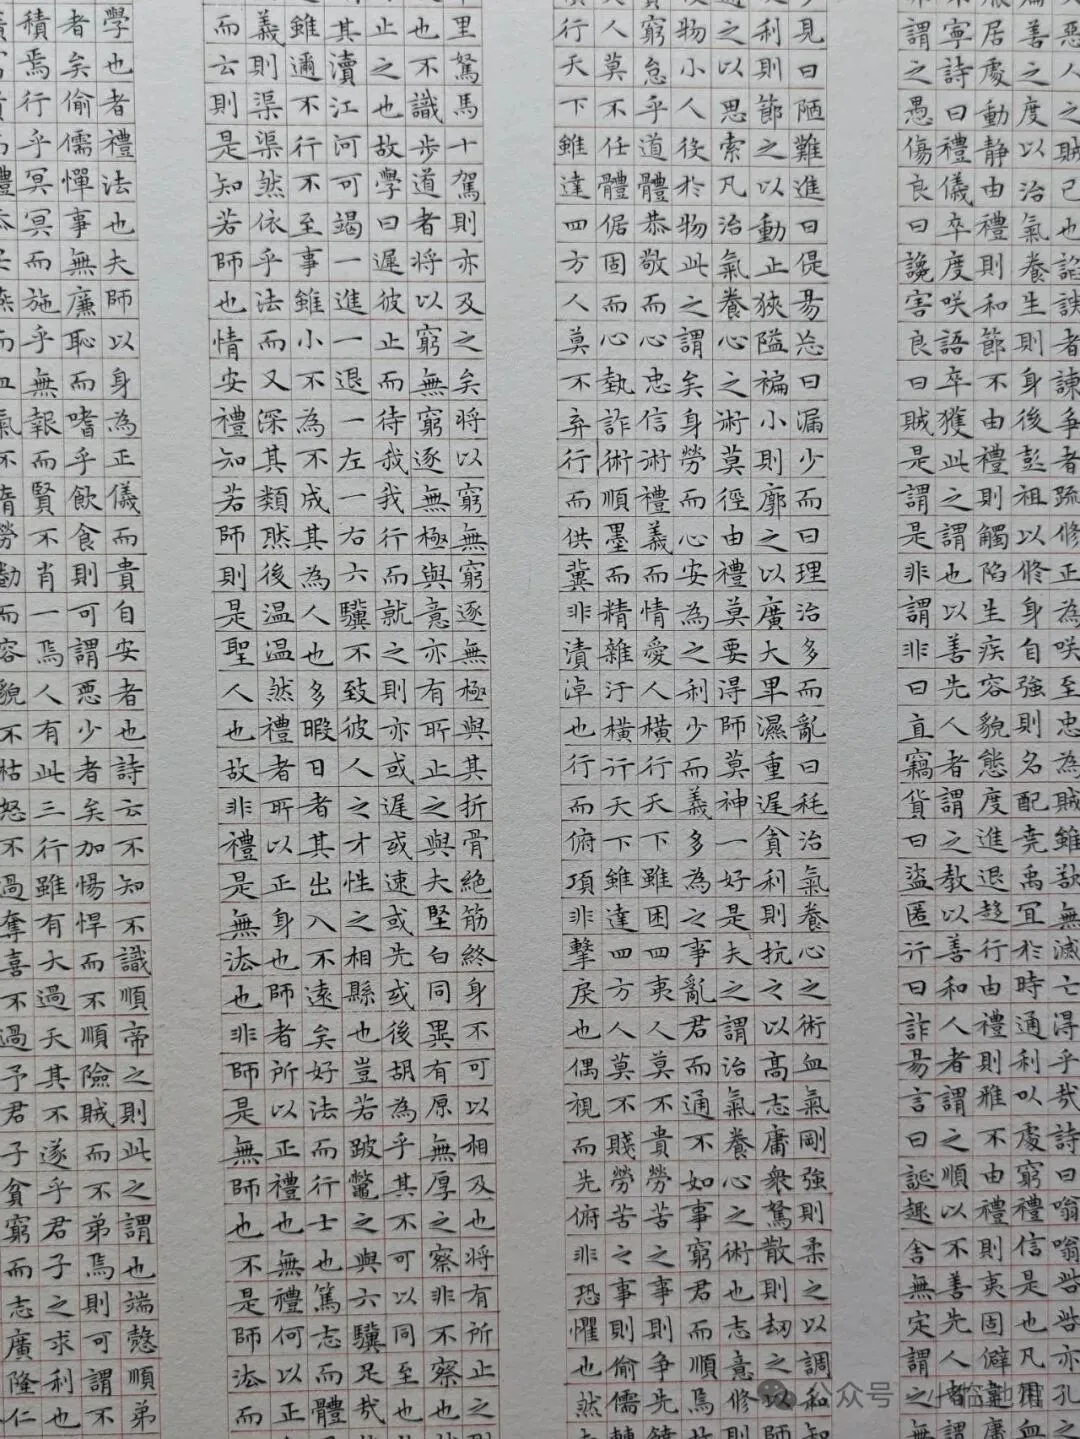 惡人之賊己也諂諛者諫爭者疏修正為咲至忠為賊雖欲無滅亡得乎哉詩曰噏噏呰呰亦孔之
善之度以治氣養生則身後彭祖以修身自強則名配堯禹冝於時通利以處窮禮信是也凡用血
居處動靜由禮則和節不由禮則觸陷生疾容貌態度進退趍行由禮則雅不由禮則夷固僻違庸
寧詩曰禮儀卒度咲語卒獲此之謂也以善先人者謂之教以善和人者謂之順以不善先人者謂
謂之愚傷良曰讒害良曰賊是謂是非謂非曰直竊貨曰盜匿行曰詐易言曰誕趣舍無定謂之無
見曰陋難進曰偍易忘曰漏少而曰理治多而亂曰秏治氣養心之術血氣剛強則柔之以調和知
利則節之以動止狹隘褊小則廓之以廣大卑濕重遲貪利則抗之以高志庸衆駑散則刼之以師
之以思索凡治氣養心之術莫徑由禮莫要得師莫神一好是夫之謂治氣養心之術也志意修則
物小人後於物此之謂矣身勞而心安為之利少而義多為之事亂君而通不如事窮君而順焉故
窮怠乎道體恭敬而心忠信術禮義而情愛人橫行天下雖困四夷人莫不貴勞苦之事則爭先饒
人莫不任體倨固而心執詐術順墨而精雜汙橫行天下雖達四方人莫不賤勞苦之事則偷儒轉
行天下雖達四方人莫不弃行而供冀非漬淖也行而俯項非擊戾也偶視而先俯非恐懼也然
里駑馬十駕則亦及之矣將以窮無窮逐無極與其折骨絕筋終身不可以相及也將有所止之
也不識步道者將以窮無窮逐無極與意亦有所止之與夫堅白同異有原無厚之察非不察也
止之也故學曰遲彼止而待我我行而就之則亦或遲或速或先或後胡為乎其不可以同至也
其瀆江河可竭一進一退一左一右六驥不致彼人之才性之相縣也豈若跛鼈之與六驥足哉
雖邇不行不至事雖小不為不成其為人也多暇日者其出入不遠矣好法而行士也篤志而體
義則渠渠然依乎法而又深其類然後溫溫然禮者所以正身也師者所以正禮也無禮何以正
而云則是知若師也情安禮知若師則是聖人也故非禮是無法也非師是無師也不是師法而
學也者禮法也夫師以身為正儀而貴自安者也詩云不知不識順帝之則此之謂也端愨順弟
者矣偷儒憚事無廉恥而嗜乎飲食則可謂惡少者矣加惕悍而不順險賊而不弟焉則可謂不
積焉行乎冥冥而施乎無報而賢不肖一焉人有此三行雖有大過天其不遂乎君子之求利也
而血氣不惰勞勌而容貌不枯怒不過奪喜不過予君子貧窮而志廣隆仁
公众号